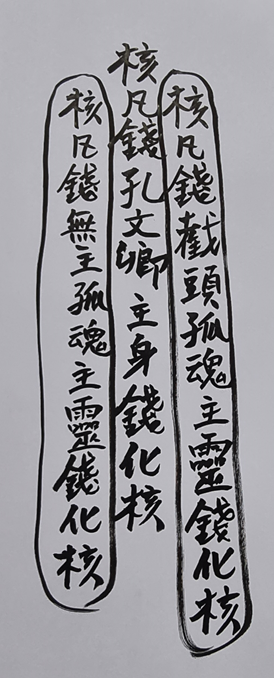 核凡錢截頭孤魂主靈錢化核
核凡錢孔文卿主身錢化核
核凡錢無主孤魂主靈錢化核